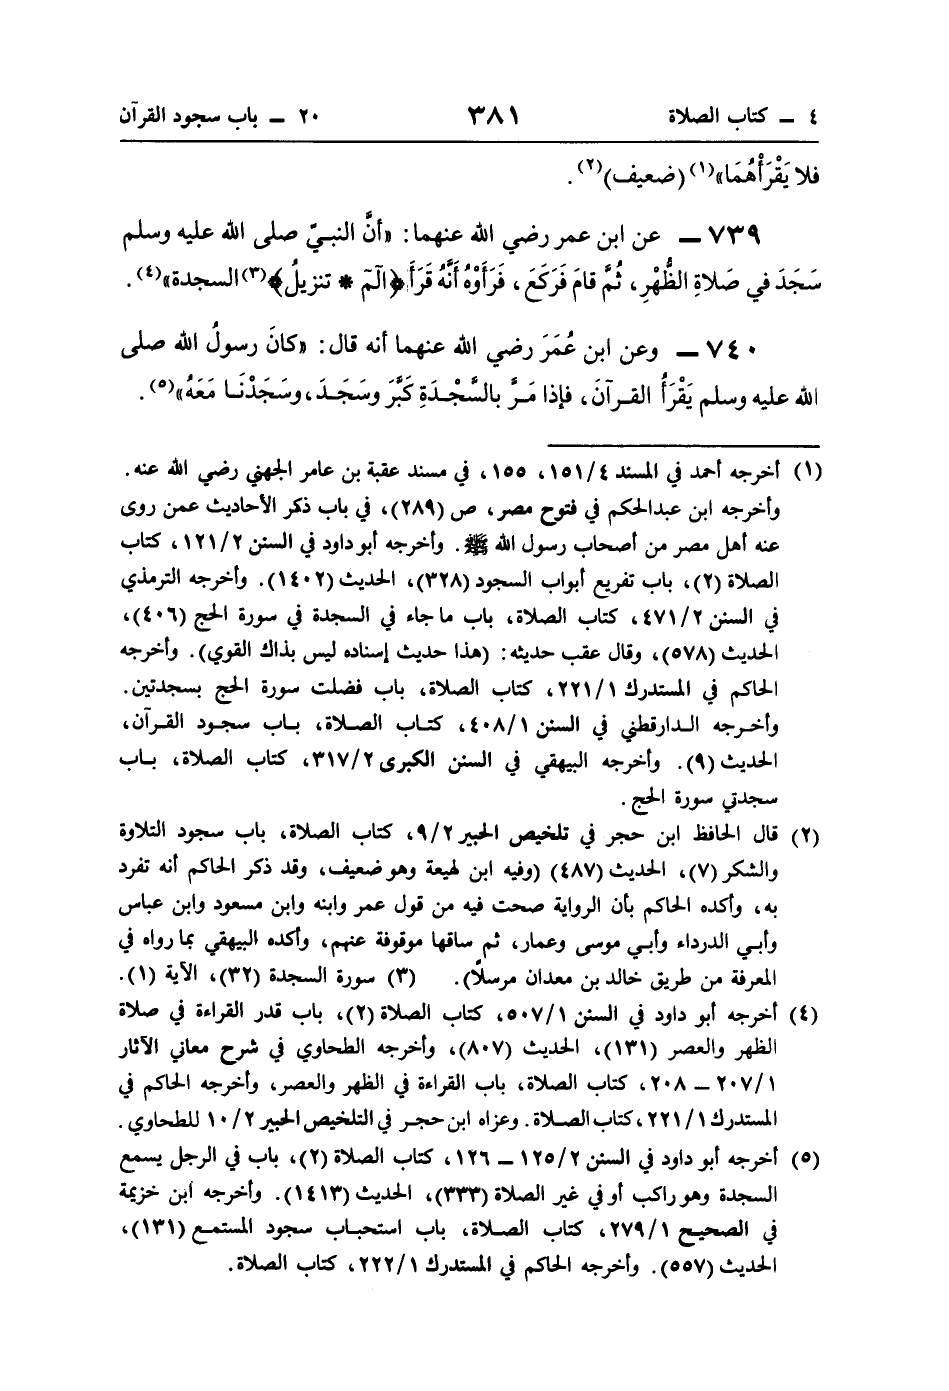 ٤ ـ كتاب الصلاة ٣٨١ ٢٠ ـ باب سجود القرآن
فلا يَقْرَأْهُمَا»(١) (ضعيف)(٢).
٧٣٩ ـ عن ابن عمر رضي الله عنهما: «أنَّ النبيّ صلى الله عليه وسلم
سَجَدَ في صَلاةِ الظُّهْرِ، ثُمَّ قامَ فَرَكَعَ، فَرَأَوْهُ أنَّهُ قَرَأَ ﴿الٓمٓ * تنزيلُ﴾(٣) السجدة»(٤).
٧٤٠ ـ وعن ابن عُمَرَ رضي الله عنهما أنه قال: «كانَ رسولُ الله صلى
الله عليه وسلم يَقْرَأُ القرآنَ، فإذا مَرَّ بالسَّجْدَةِ كَبَّرَ وسَجَدَ، وسَجَدْنَا مَعَهُ»(٥).
(١) أخرجه أحمد في المسند ١٥١/٤، ١٥٥، في مسند عقبة بن عامر الجهني رضي الله عنه.
وأخرجه ابن عبدالحكم في فتوح مصر، ص (٢٨٩)، في باب ذكر الأحاديث عمن روى
عنه أهل مصر من أصحاب رسول الله ﷺ. وأخرجه أبو داود في السنن ١٢١/٢، كتاب
الصلاة (٢)، باب تفريع أبواب السجود (٣٢٨)، الحديث (١٤٠٢). وأخرجه الترمذي
في السنن ٤٧١/٢، كتاب الصلاة، باب ما جاء في السجدة في سورة الحج (٤٠٦)،
الحديث (٥٧٨)، وقال عقب حديثه: (هذا حديث إسناده ليس بذاك القوي). وأخرجه
الحاكم في المستدرك ٢٢١/١، كتاب الصلاة، باب فضلت سورة الحج بسجدتين.
وأخرجه الدارقطني في السنن ٤٠٨/١، كتاب الصلاة، باب سجود القرآن،
الحديث (٩). وأخرجه البيهقي في السنن الكبرى ٣١٧/٢، كتاب الصلاة، باب
سجدتي سورة الحج.
(٢) قال الحافظ ابن حجر في تلخيص الحبير ٩/٢، كتاب الصلاة، باب سجود التلاوة
والشكر (٧)، الحديث (٤٨٧) (وفيه ابن لهيعة وهو ضعيف، وقد ذكر الحاكم أنه تفرد
به، وأكده الحاكم بأن الرواية صحت فيه من قول عمر وابنه وابن مسعود وابن عباس
وأبي الدرداء وأبي موسى وعمار، ثم ساقها موقوفة عنهم، وأكده البيهقي بما رواه في
المعرفة من طريق خالد بن معدان مرسلاً). (٣) سورة السجدة (٣٢)، الآية (١).
(٤) أخرجه أبو داود في السنن ٥٠٧/١، كتاب الصلاة (٢)، باب قدر القراءة في صلاة
الظهر والعصر (١٣١)، الحديث (٨٠٧)، وأخرجه الطحاوي في شرح معاني الآثار
٢٠٧/١ ـ ٢٠٨، كتاب الصلاة، باب القراءة في الظهر والعصر، وأخرجه الحاكم في
المستدرك ٢٢١/١، كتاب الصلاة. وعزاه ابن حجر في التلخيص الحبير ١٠/٢ للطحاوي.
(٥) أخرجه أبو داود في السنن ١٢٥/٢ ـ ١٢٦، كتاب الصلاة (٢)، باب في الرجل يسمع
السجدة وهو راكب أو في غير الصلاة (٣٣٣)، الحديث (١٤١٣). وأخرجه ابن خزيمة
في الصحيح ٢٧٩/١، كتاب الصلاة، باب استحباب سجود المستمع (١٣١)،
الحديث (٥٥٧). وأخرجه الحاكم في المستدرك ٢٢٢/١، كتاب الصلاة.